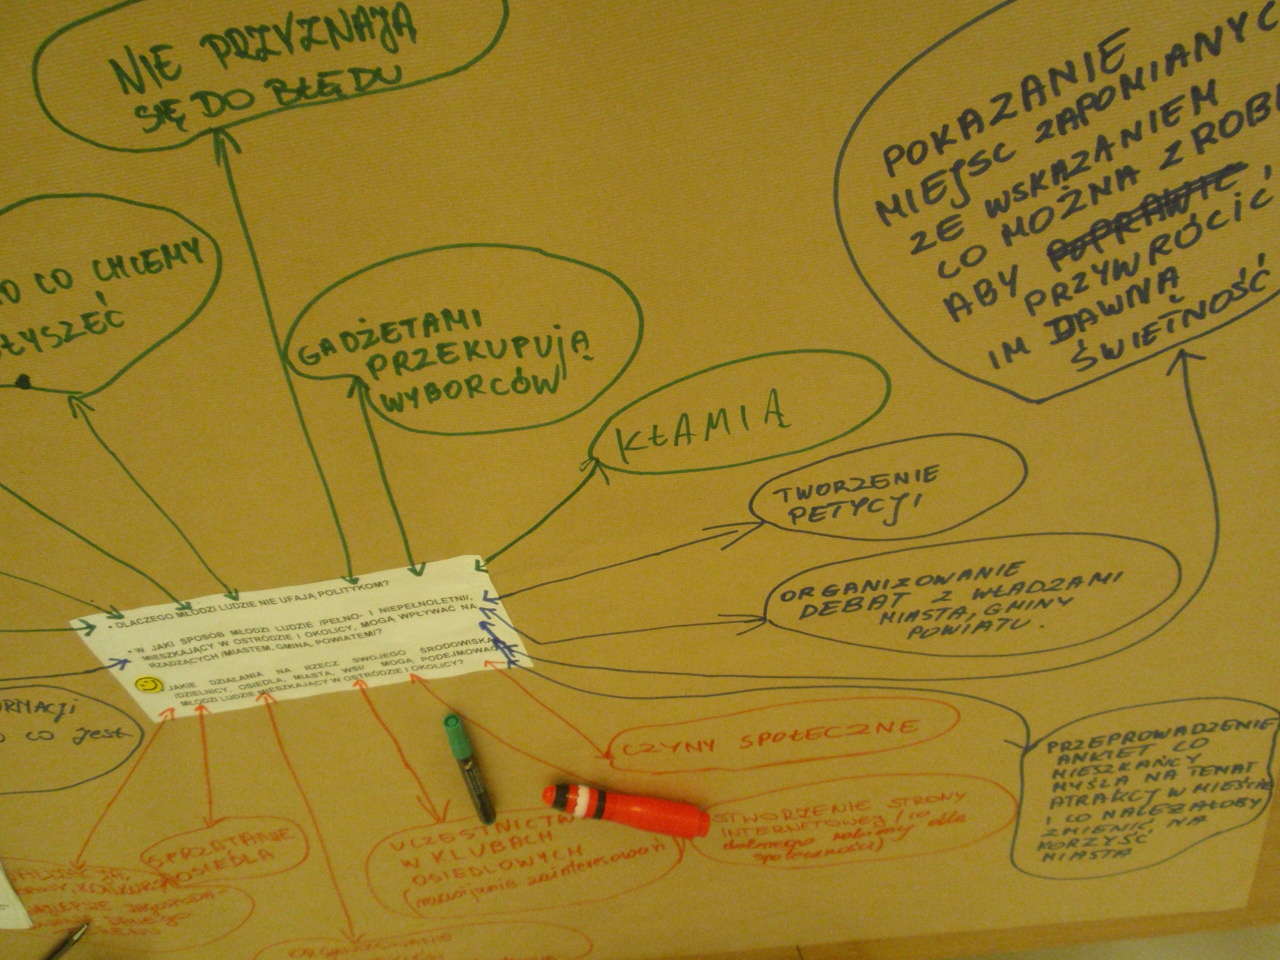 NIE PRZYZNAJĄ
SIĘ DO BŁĘDU
CO CHCEMY
GADŻETAMI
PRZEKUPUJĄ
WYBORCÓW
KŁAMIĄ
POKAZANIE
MIEJSC ZAPOMIANYC
ZE WSKAZANIEM
CO MOŻNA ZROBI
ABY POPRAWIĆ,
PRZYWRÓCIĆ
IM DAWNĄ
ŚWIETNOŚĆ
TWORZENIE
PETYCJI
ORGANIZOWANIE
DEBAT Z WŁADZAMI
MIASTA, GMINY
POWIATU.
• DLACZEGO MŁODZI LUDZIE NIE UFAJĄ POLITYKOM?
• W JAKI SPOSÓB MŁODZI LUDZIE /PEŁNO- I NIEPEŁNOLETNI/,
MIESZKAJĄCY W OSTRÓDZIE I OKOLICY, MOGĄ WPŁYWAĆ NA
RZĄDZĄCYCH /MIASTEM, GMINĄ, POWIATEM/?
JAKIE DZIAŁANIA NA RZECZ SWOJEGO ŚRODOWISKA
/DZIELNICY, OSIEDLA, MIASTA, WSI/ MOGĄ PODEJMOWAĆ
MŁODZI LUDZIE MIESZKAJĄCY W OSTRÓDZIE I OKOLICY?
CO JEST
CZYNY SPOŁECZNE
PRZEPROWADZENIE
ANKIET CO
MIESZKAŃCY
MYŚLĄ NA TEMAT
ATRAKCY W MIEŚCIE
I CO NALEŻAŁOBY
ZMIENIĆ NA
KORZYŚĆ
MIASTA
SPRZĄTANIE
OSIEDLA
UCZESTNICTW
W KLUBACH
OSIEDLOWYCH
(rozwijanie zainteresowań)
STWORZENIE STRONY
INTERNETOWEJ (co
dobrego robimy dla
społeczności)